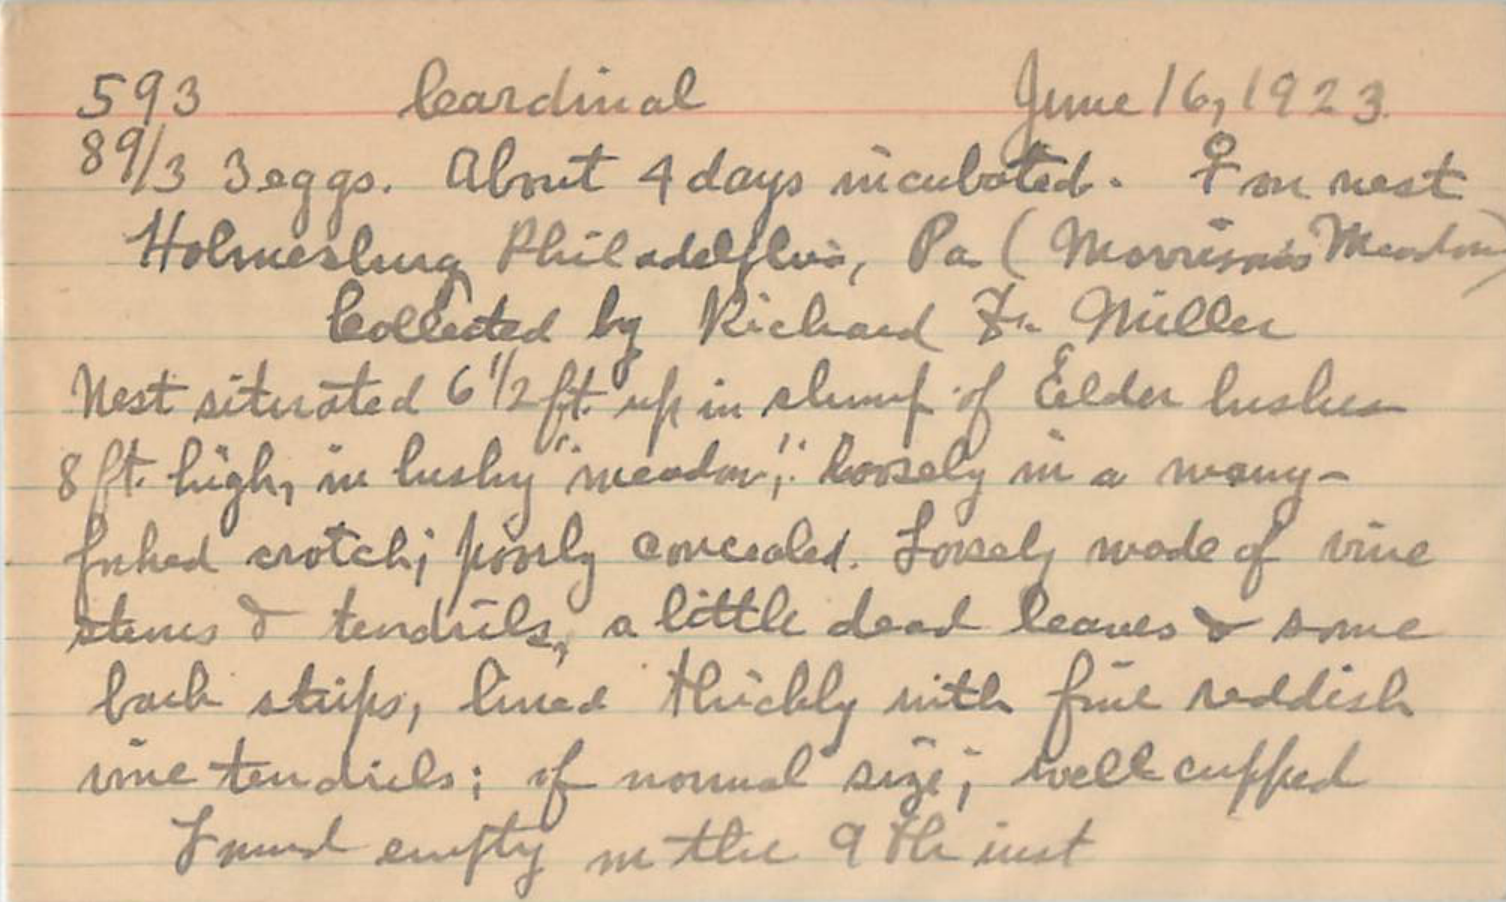 593 Cardinal June 16, 1923.
89/3 3 eggs. About 4 days incubated. ♀ on nest
Holmesburg Philadelphia, Pa (Morrison's Meadow)
Collected by Richard F. Miller
Nest situated 6 1/2 ft. up in clump of Elder bushes
8 ft. high, in bushy "meadow"; loosely in a many-
forked crotch; poorly concealed. Loosely made of vine
stems & tendrils, a little dead leaves & some
bark strips, lined thickly with fine reddish
vine tendrils; of normal size; well cupped
Found empty on the 9th inst